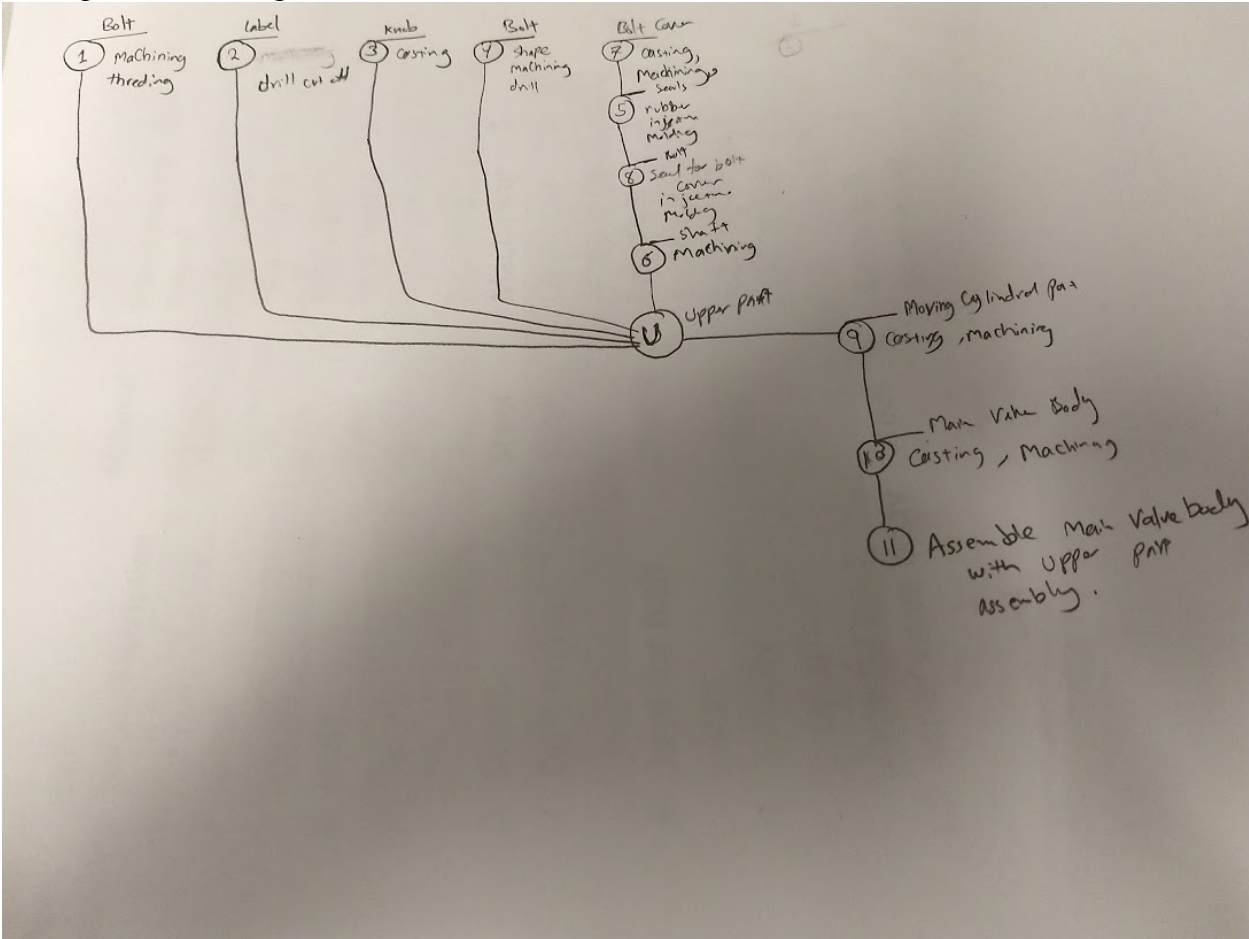 Bolt
1 Machining
threding
Label
2
drill cut off
Knob
3 Casting
Bolt
4 shape
machining
drill
Bolt Cover
7 casting,
Machining
seals
5 rubber
injection
Molding
Bolt
8 seal for bolt
cover
injection
Molding
shaft
6 Machining
U Upper part
Moving Cylindrel part
9 Casting, Machining
Main Valve Body
10 Casting, Machining
11 Assemble Main Valve body
with Upper part
assembly.